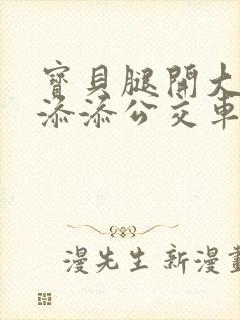 寶貝腿開大
添添公交車
漫先生新漫畫